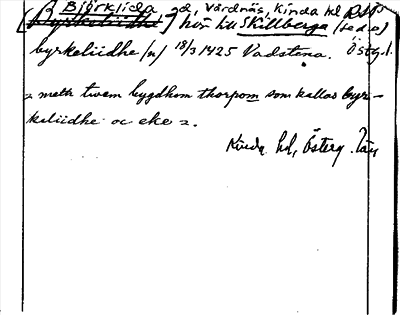 [Björklida gd, Vårdnäs, Kinda hd
Byrkeliidhe] hör till Skillberga (se d.o) Östg.l.
byrkeliidhe (n) 18/3 1425 Vadstena.
= meth twem bygdhom thorpom som kallas byr-
keliidhe oc eke =.
Kinda hd, Österg. län